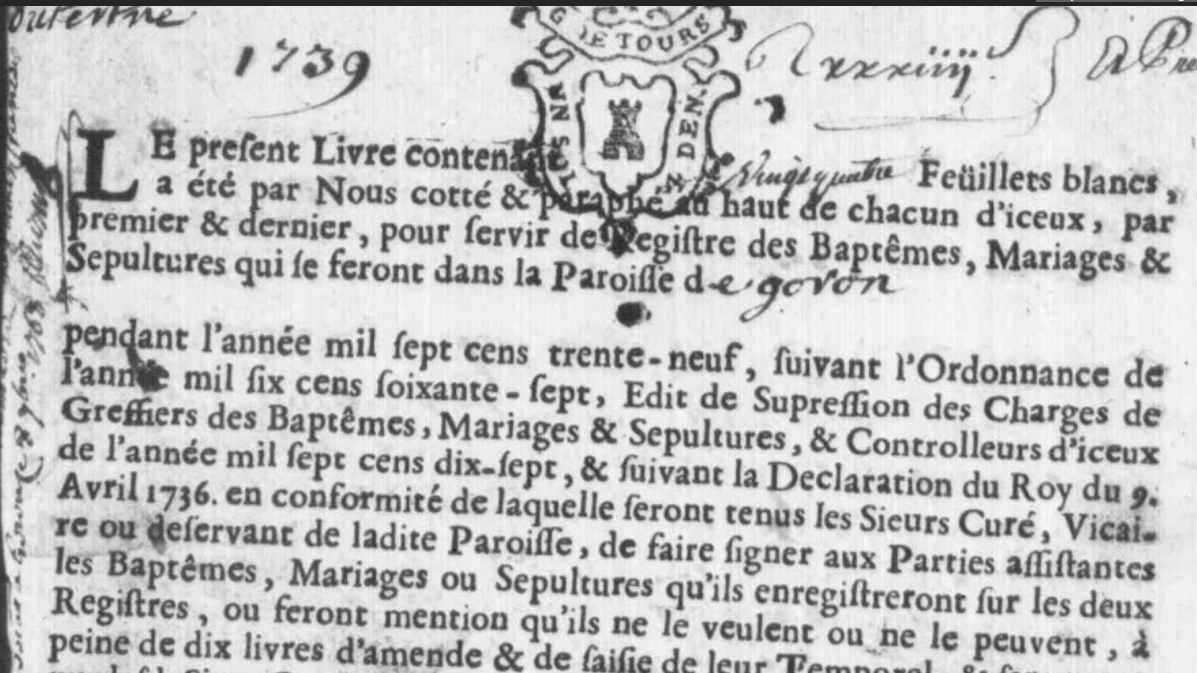 1739
DE TOURS
DEN.
LE preſent Livre contenant vingt quatre Feüillets blancs,
a été par Nous cotté & paraphé au haut de chacun d'iceux, par
premier & dernier, pour ſervir de Regiſtre des Baptêmes, Mariages &
Sepultures qui ſe feront dans la Paroiſſe de goron
pendant l'année mil ſept cens trente-neuf, ſuivant l'Ordonnance de
l'année mil ſix cens ſoixante-ſept, Edit de Supreſſion des Charges de
Greffiers des Baptêmes, Mariages & Sepultures, & Controlleurs d'iceux
de l'année mil ſept cens dix-ſept, & ſuivant la Declaration du Roy du 9.
Avril 1736. en conformité de laquelle ſeront tenus les Sieurs Curé, Vicai-
re ou deſervant de ladite Paroiſſe, de faire ſigner aux Parties aſſiſtantes
les Baptêmes, Mariages ou Sepultures qu'ils enregiſtreront ſur les deux
Regiſtres, ou feront mention qu'ils ne le veulent ou ne le peuvent, à
peine de dix livres d'amende & de ſaiſie de leur Temporel, &